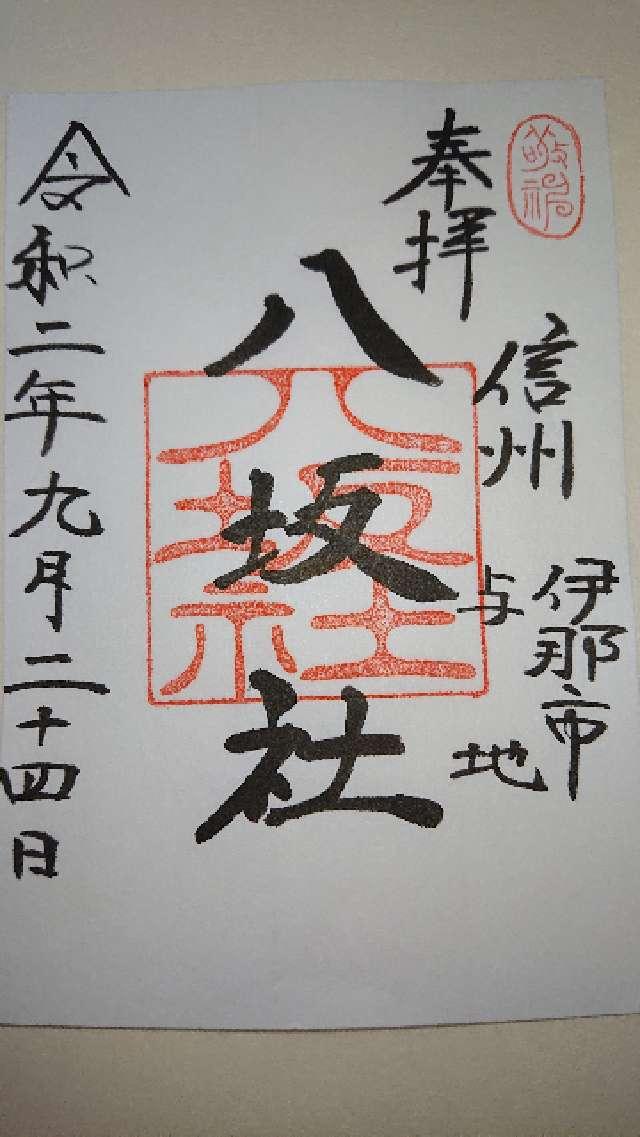 敬神
奉拝
信州
伊那市
与地
八坂社
八坂社
令和二年九月二十四日